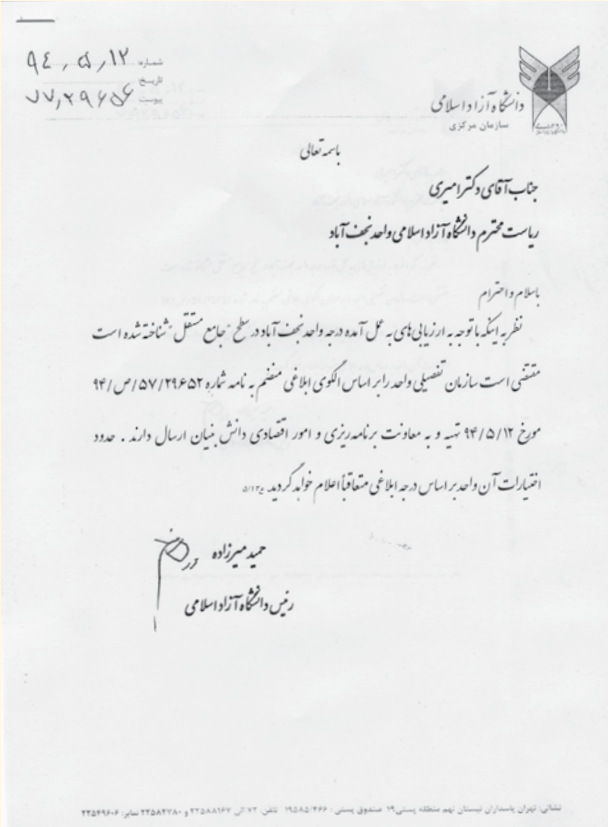 شماره ۹۴,۵,۱۲
تاریخ:
پیوست
دانشگاه آزاد اسلامی
سازمان مرکزی
باسمه تعالی
جناب آقای دکتر امیری
ریاست محترم دانشگاه آزاد اسلامی واحد نجف آباد
باسلام و احترام
نظر به اینکه با توجه به ارزیابی های به عمل آمده درجه واحد نجف آباد در سطح "جامع مستقل" شناخته شده است
مقتضی است سازمان تفصیلی واحد را بر اساس الگوی ابلاغی منضم به نامه شماره ۵۷/۲۹۶۵۲/ص/۹۴
مورخ ۹۴/۵/۱۲ تهیه و به معاونت برنامه ریزی و امور اقتصادی دانش بنیان ارسال دارند . حدود
اختیارات آن واحد بر اساس درجه ابلاغی متعاقباً اعلام خواهد گردید.
حمید میرزاده
رئیس دانشگاه آزاد اسلامی
نشانی: تهران پاسداران نیستان نهم منطقه پستی۱۹ صندوق پستی : ۱۹۵۸۵/۴۶۶ تلفن